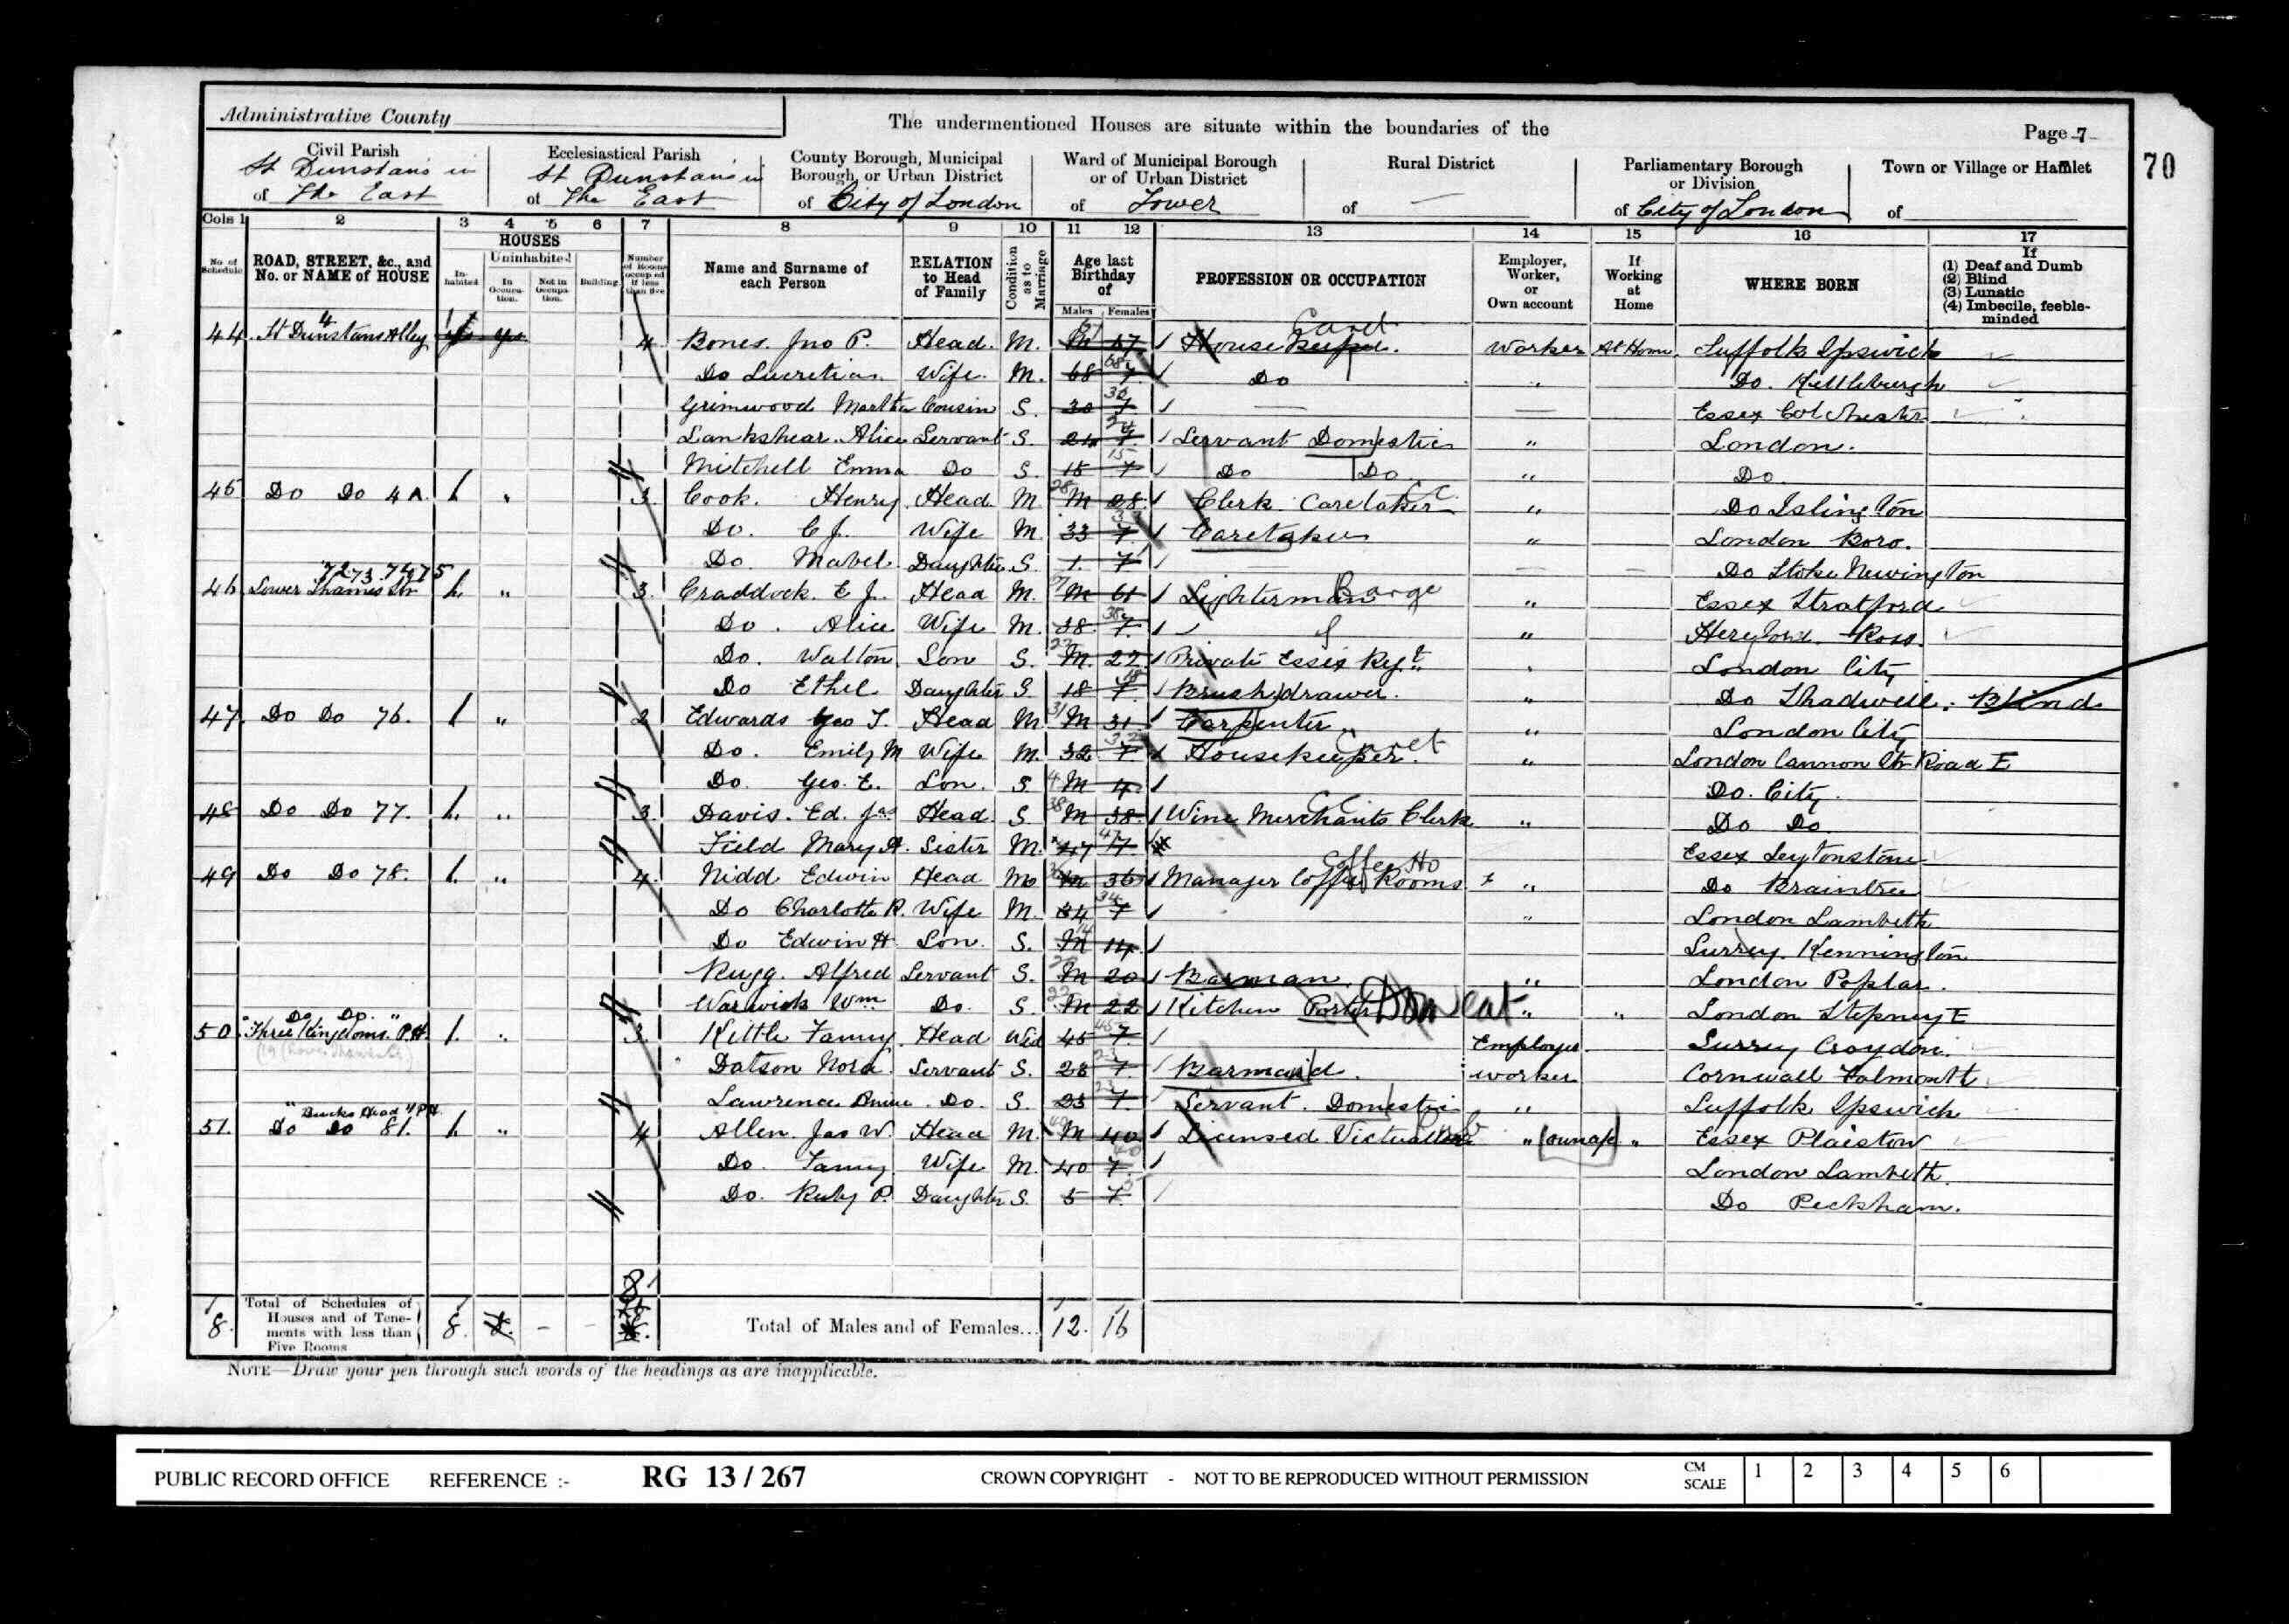 Administrative County
The undermentioned Houses are situate within the boundaries of the
Page 7
70
Civil Parish
of St Dunstans in The East
Ecclesiastical Parish
of St Dunstans in The East
County Borough, Municipal Borough, or Urban District
of City of London
Ward of Municipal Borough or of Urban District
of Tower
Rural District
of —
Parliamentary Borough or Division
of City of London
Town or Village or Hamlet
of
Cols 1 2 3 4 5 6 7 8 9 10 11 12 13 14 15 16 17
No. of Schedule
ROAD, STREET, &c., and No. or NAME of HOUSE
HOUSES
Inhabited
Uninhabited
In Occupation.
Not in Occupation.
Building
Number of Rooms occupied if less than five
Name and Surname of each Person
RELATION to Head of Family
Condition as to Marriage
Age last Birthday of
Males Females
PROFESSION OR OCCUPATION
Employer, Worker, or Own account
If Working at Home
WHERE BORN
If
(1) Deaf and Dumb
(2) Blind
(3) Lunatic
(4) Imbecile, feeble-minded
44 4 St Dunstans Alley 4 Bones. Jno P. Head. M. M 67 House Keeper. Worker At Home. Suffolk Ipswich
Do Lucretia Wife. M. 68 F Do " Do. Kettleburgh
Grimwood Martha Cousin S. 30 F — — Essex Colchester
Lankshear. Alice Servant S. 24 F Servant Domestic " London.
Mitchell Emma Do S. 15 F Do Do " Do.
45 Do Do 4A. 1 " 3. Cook. Henry. Head. M M 28 Clerk Caretaker " Do Islington
Do. C J. Wife M. 33 F Caretaker " London Boro.
Do. Mabel. Daughter S. 1. F — — — Do Stoke Newington
46 72 73 74 75 Lower Thames Str 1. " 3. Craddock. E J. Head M. M 61 Lighterman Barge " Essex Stratford
Do. Alice Wife M. 38 F " Hereford. Ross.
Do. Walton. Son S. M. 22. Private Essex Regt " London City
Do Ethel Daughter S 18 F Brush drawer. " Do Shadwell. Blind
47. Do Do 76. 1 " 2 Edwards Geo T. Head M. M 31. Carpenter " London City
Do. Emily M Wife M. 32 F. Housekeeper. " London Cannon Str Road E
Do. Geo. E. Son. S. M 4. Do. City.
48 Do Do 77. 1. " 3. Davis. Ed. Jas Head S. M 38. Wine Merchants Clerk " Do Do.
Field Mary A. Sister M. 47 F. Essex Leytonstone
49 Do Do 78. 1. " 4. Nidd Edwin Head M M 36 Manager Coffee Rooms " Do Braintree
Do Charlotte R. Wife M. 34 F " London Lambeth.
Do Edwin H. Son. S. M 14. Surrey. Kennington
Rugg. Alfred Servant S. M 20 Barman. " London Poplar.
Warwick Wm Do. S. M 22 Kitchen Porter Domest " " London Stepney E
50 Do Do. " Three Kingdoms. P.H. 1. " 3. Kittle Fanny. Head Wid 45 F Employer Surrey Croydon.
Datson Nora. Servant S. 23 F. Barmaid. worker Cornwall Falmouth
Lawrence Do. S. 23 F. Servant. Domestic " Suffolk Ipswich
51. "Bucks Head" P.H. Do Do 81. 1. " 4 Allen. Jas W. Head M. M 40. Licensed Victualler " " Essex Plaistow
Do. Fanny Wife M. 40 F. London Lambeth.
Do. Ruby P. Daughter S. 5 F. Do Peckham.
8. Total of Schedules of Houses and of Tenements with less than Five Rooms 8. – – 8. Total of Males and of Females... 12. 16
NOTE—Draw your pen through such words of the headings as are inapplicable.
PUBLIC RECORD OFFICE REFERENCE :- RG 13 / 267 CROWN COPYRIGHT - NOT TO BE REPRODUCED WITHOUT PERMISSION CM SCALE 1 2 3 4 5 6